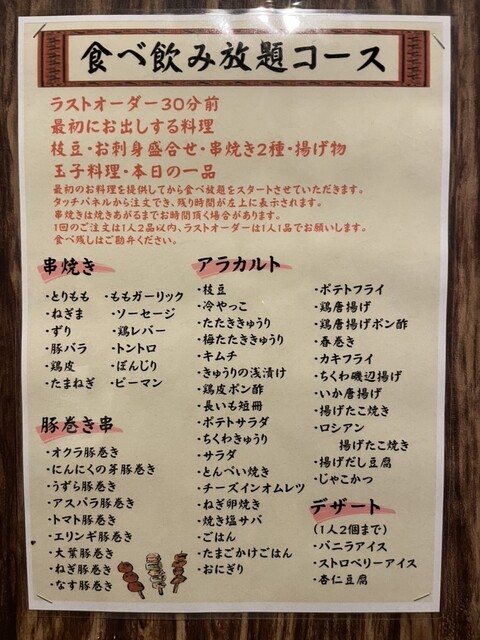 食べ飲み放題コース
ラストオーダー30分前
最初にお出しする料理
枝豆・お刺身盛合せ・串焼き2種・揚げ物
玉子料理・本日の一品
最初のお料理を提供してから食べ放題をスタートさせていただきます。
タッチパネルから注文でき、残り時間が左上に表示されます。
串焼きは焼きあがるまでお時間頂く場合があります。
1回のご注文は1人2品以内、ラストオーダーは1人1品でお願いします。
食べ残しはご勘弁ください。
串焼き
・とりもも
・ねぎま
・ずり
・豚バラ
・鶏皮
・たまねぎ
・ももガーリック
・ソーセージ
・鶏レバー
・トントロ
・ぼんじり
・ピーマン
豚巻き串
・オクラ豚巻き
・にんにくの芽豚巻き
・うずら豚巻き
・アスパラ豚巻き
・トマト豚巻き
・エリンギ豚巻き
・大葉豚巻き
・ねぎ豚巻き
・なす豚巻き
アラカルト
・枝豆
・冷やっこ
・たたききゅうり
・梅たたききゅうり
・キムチ
・きゅうりの浅漬け
・鶏皮ポン酢
・長いも短冊
・ポテトサラダ
・ちくわきゅうり
・サラダ
・とんぺい焼き
・チーズインオムレツ
・ねぎ卵焼き
・焼き塩サバ
・ごはん
・たまごかけごはん
・おにぎり
・ポテトフライ
・鶏唐揚げ
・鶏唐揚げポン酢
・春巻き
・カキフライ
・ちくわ磯辺揚げ
・いか唐揚げ
・揚げたこ焼き
・ロシアン
揚げたこ焼き
・揚げだし豆腐
・じゃこかつ
デザート
(1人2個まで)
・バニラアイス
・ストロベリーアイス
・杏仁豆腐